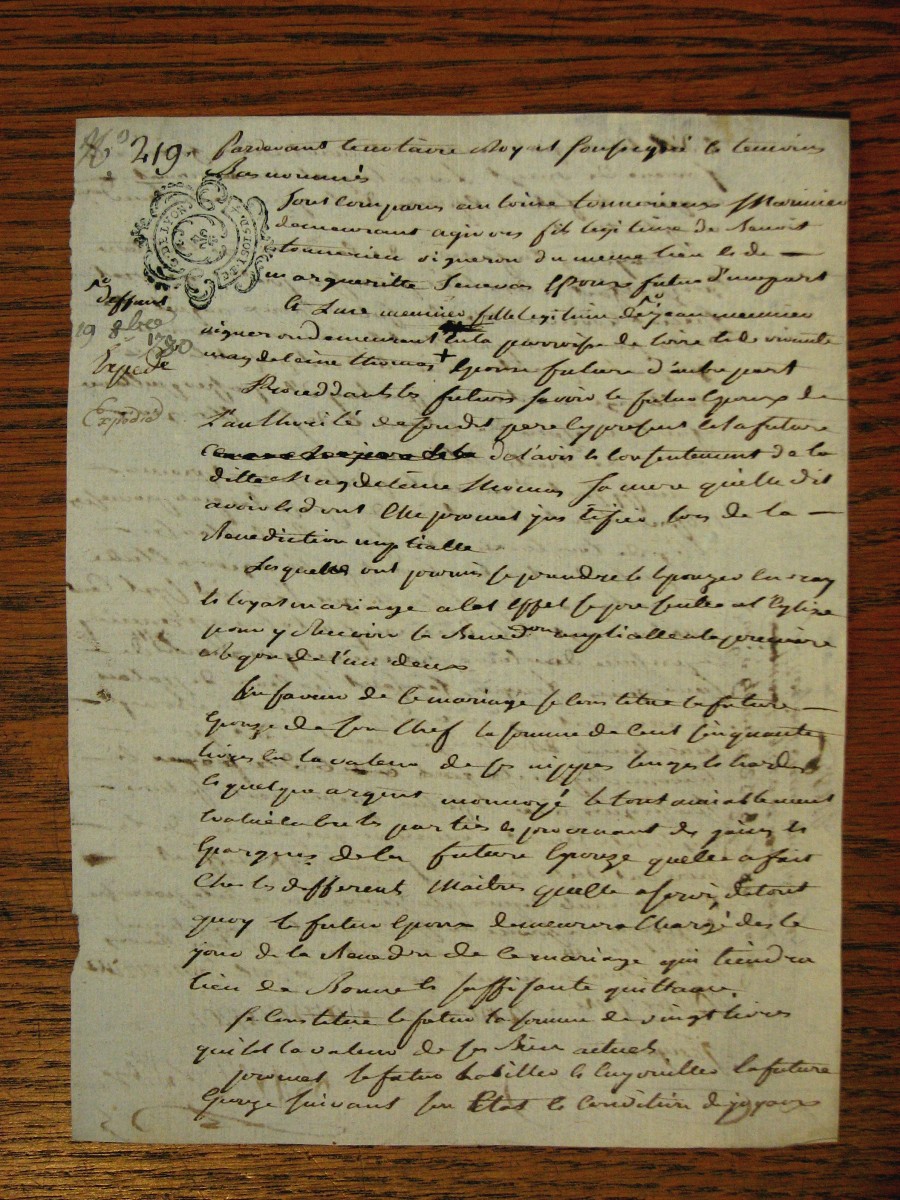 No 219.
Pardevant le notaire Royal soussigné et temoins
Bas nommés
G. DE LYON
2 SOLS
Sont comparus antoine tonnerieux Marinier
demeurant a givors fils legitime de Benoit
tonnerieu vigneron du meme lieu et de —
margueritte Epoux futur d'une part
Et meunier fille legitime de feu jean meunier
vigneron demeurant en la parroisse de et de vivante
magdelaine thomas + Epouse future d'autre part
19 8bre 1790
Expedié
Expedié
Proceddants les futurs savoir le futur Epoux de
L'authorité de son dit pere cy present et la future
de l'avis et consentement de la
ditte Magdelaine thomas sa mere quelle dit
avoir et dont Elle promet justifier lors de la —
Benediction nuptialle
Lesquels ont promis se prendre et Epouzer en vray
et loyal mariage a cet Effet se presenter a l'Eglise
pour y Recevoir la Bened.on nuptialle a la premiere
de l'un deux
En faveur de ce mariage se constitue la future —
Epouze de son Chef la somme de cent cinquante
livres en la valeur de ses nippes linges et hardes
et quelque argent monnoyé le tout amiablement
Evalué entre les parties et provenant des gains et
Epargnes de la future Epouze quelle a fait
Chez les differents Maitres quelle a servi, de tout
quoy le futur Epoux demeurera Chargé des le
jour de la Benedon de ce mariage qui tiendra
lieu de Bonne et suffisante quittance.
Se constitue le futur la somme de vingt livres
qui est la valeur de ses Biens actuels
promet le futur habiller et enjoailler la future
Epouze suivant son Etat et Condition de joyaux